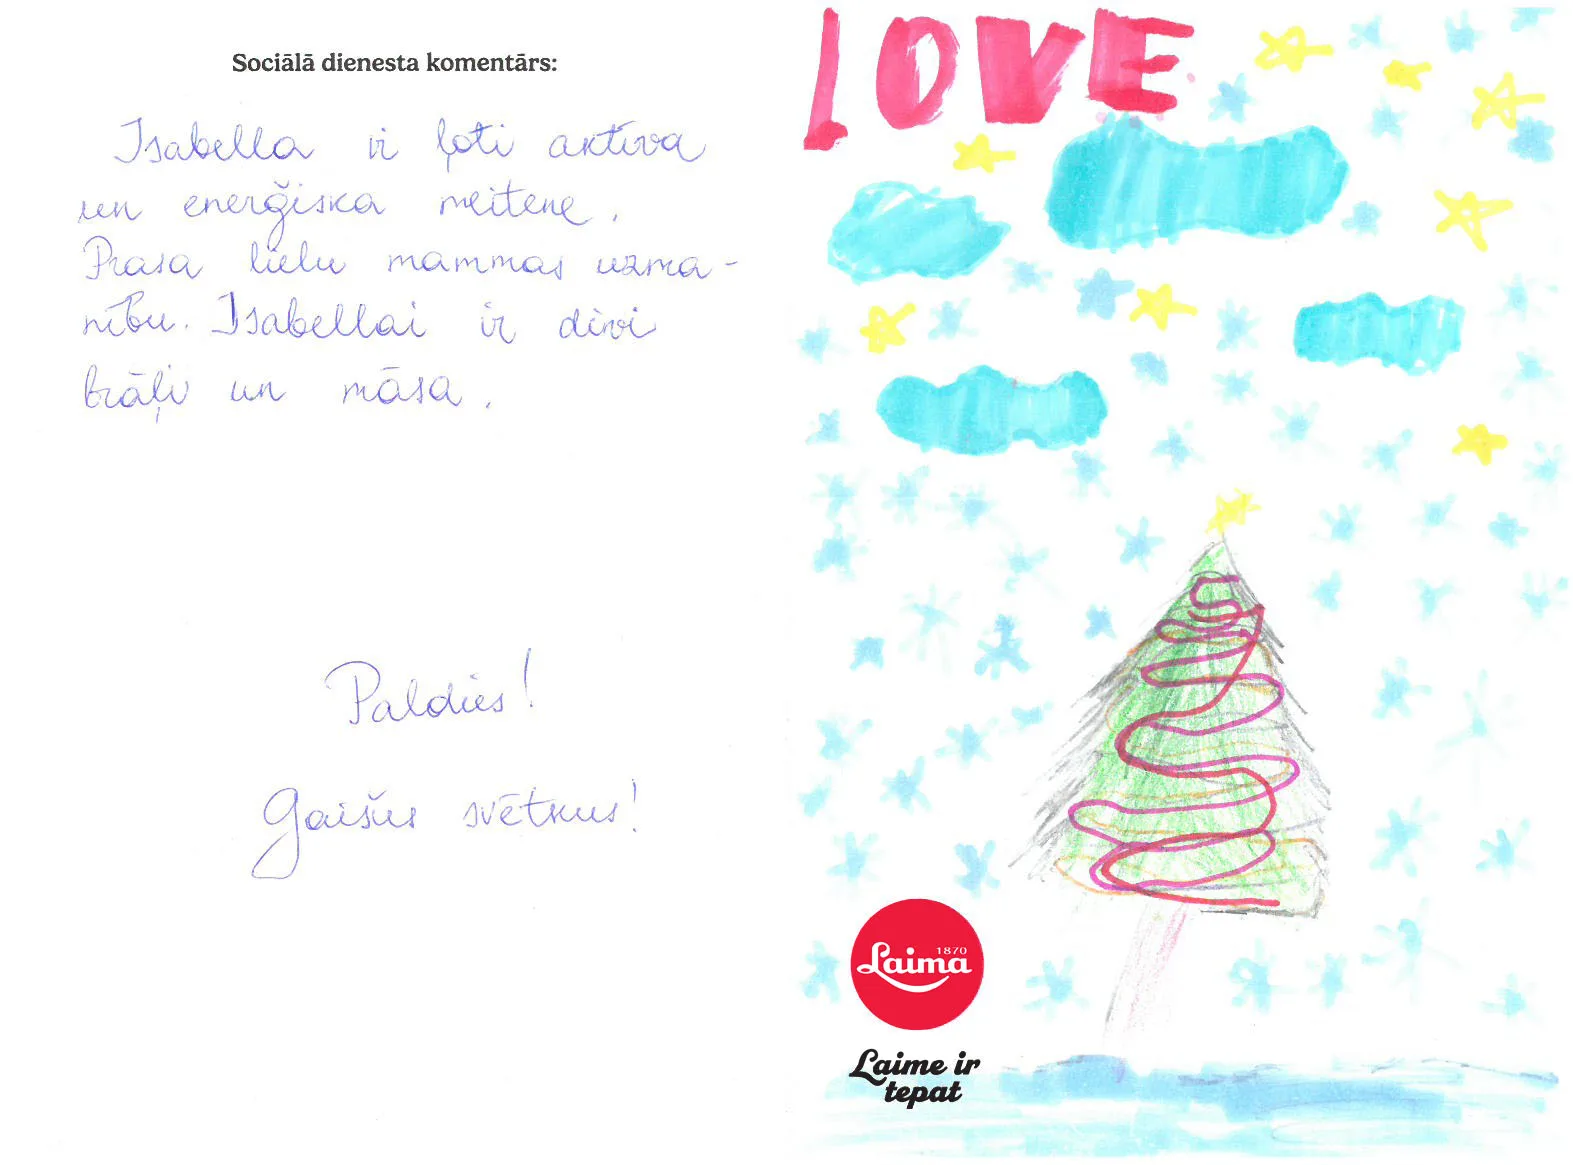 Sociālā dienesta komentārs:
Isabella ir ļoti aktīva
un enerģiska meitene.
Prasa lielu mammas uzma-
nību. Isabellai ir divi
brāļi un māsa.
Paldies!
Gaišus svētkus!
LOVE
1870
Laima
Laime ir
tepat